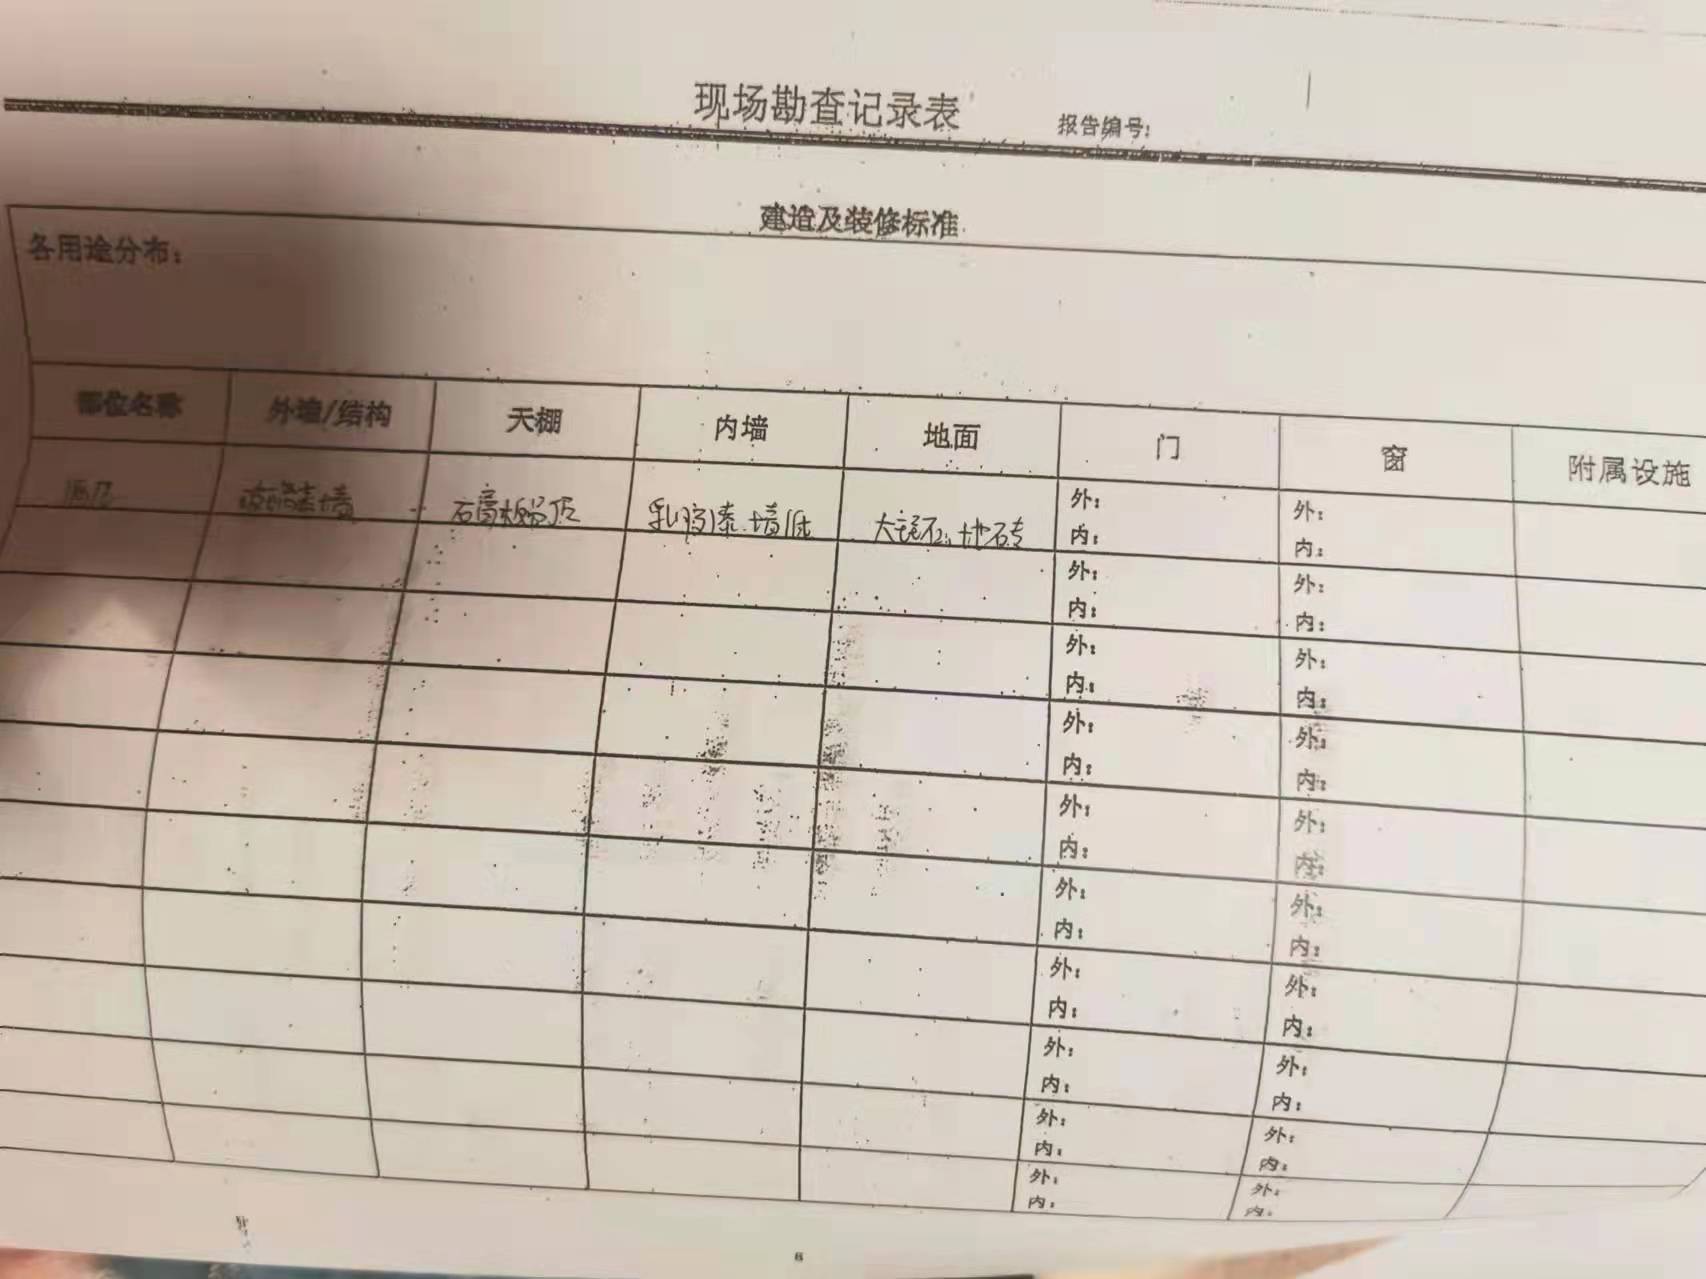 现场勘查记录表
报告编号:
建造及装修标准
各用途分布:
部位名称 外墙/结构 天棚 内墙 地面 门 窗 附属设施
酒店 玻璃幕墙 石膏板吊顶 乳胶漆.墙纸 大理石、地石专 外: 外:
内: 内:
外: 外:
内: 内:
外: 外:
内: 内:
外: 外:
内: 内:
外: 外:
内: 内:
外: 外:
内: 内:
外: 外:
内: 内:
外: 外:
内: 内:
外: 外:
内: 内:
外: 外:
内: 内:
6